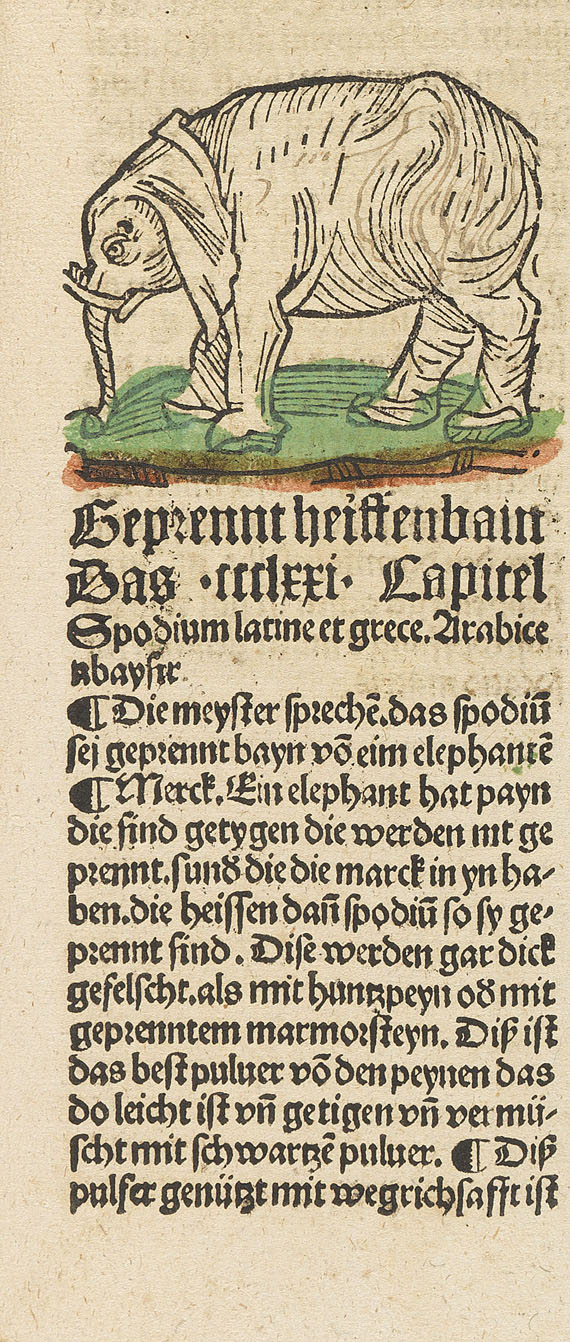 Geprennt helffenbain
Das ·ccclxxi· Capitel
Spodium latine et grece. Arabice
abaysir
¶ Die meyster sprechē. das spodiū
sei geprennt bayn vō eim elephantē
¶ Merck. Ein elephant hat payn
die sind getygen die werden nit ge
prennt. sund̕ die die marck in yn ha⸗
ben. die heissen dañ spodiū so sy ge⸗
prennt sind. Dise werden gar dick
gefelscht. als mit huntzpeyn od̕ mit
geprenntem marmorsteyn. Diß ist
das best puluer vō den peynen das
do leicht ist vñ getigen vñ vermü⸗
scht mit schwartzē puluer. ¶ Diß
pulfer genützt mit wegrichsafft ist